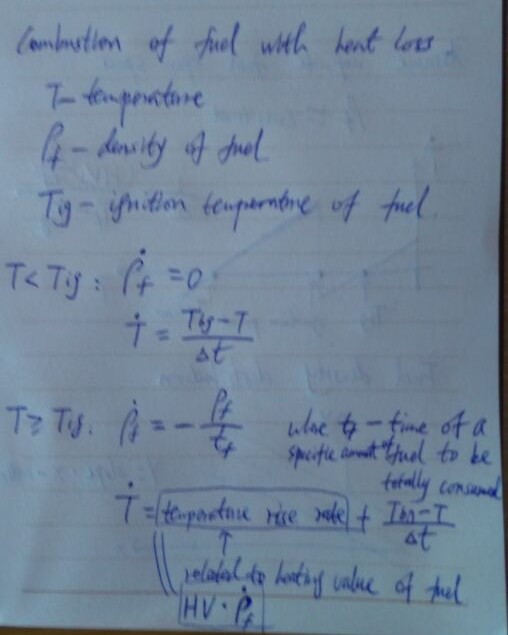 Combustion of fuel with heat loss
T - temperature
ρf - density of fuel
Tig - ignition temperature of fuel
T < Tig : ρ̇f = 0
Ṫ = (Tbg - T) / Δt
T ≥ Tig : ρ̇f = - ρf / tf where tf - time of a
specific amount of fuel to be
totally consumed
Ṫ = temperature rise rate + (Tbg - T) / Δt
↑
related to heating value of fuel
HV · ρ̇f